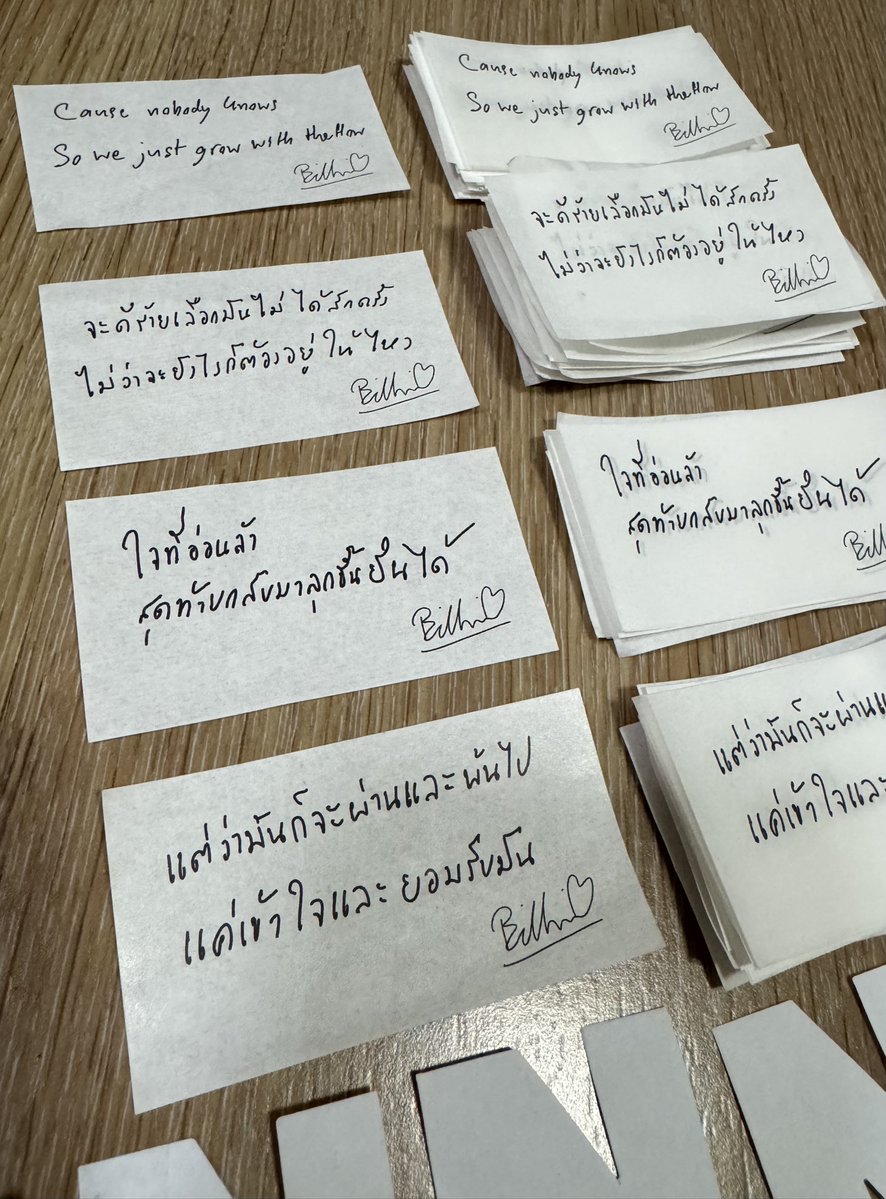 Cause nobody knows
So we just grow with the flow
Billkin
จะดีร้ายเลือกมันไม่ได้สักครั้ง
ไม่ว่าจะยังไงก็ต้องอยู่ให้ไหว
Billkin
ใจที่อ่อนล้า
สุดท้ายกลับมาลุกขึ้นยืนได้
Billkin
แต่ว่ามันก็จะผ่านและพ้นไป
แค่เข้าใจและยอมรับมัน
Billkin
Cause nobody knows
So we just grow with the flow
Billkin
จะดีร้ายเลือกมันไม่ได้สักครั้ง
ไม่ว่าจะยังไงก็ต้องอยู่ให้ไหว
Billkin
ใจที่อ่อนล้า
สุดท้ายกลับมาลุกขึ้นยืนได้
แต่ว่ามันก็จะผ่าน
แค่เข้าใจและ